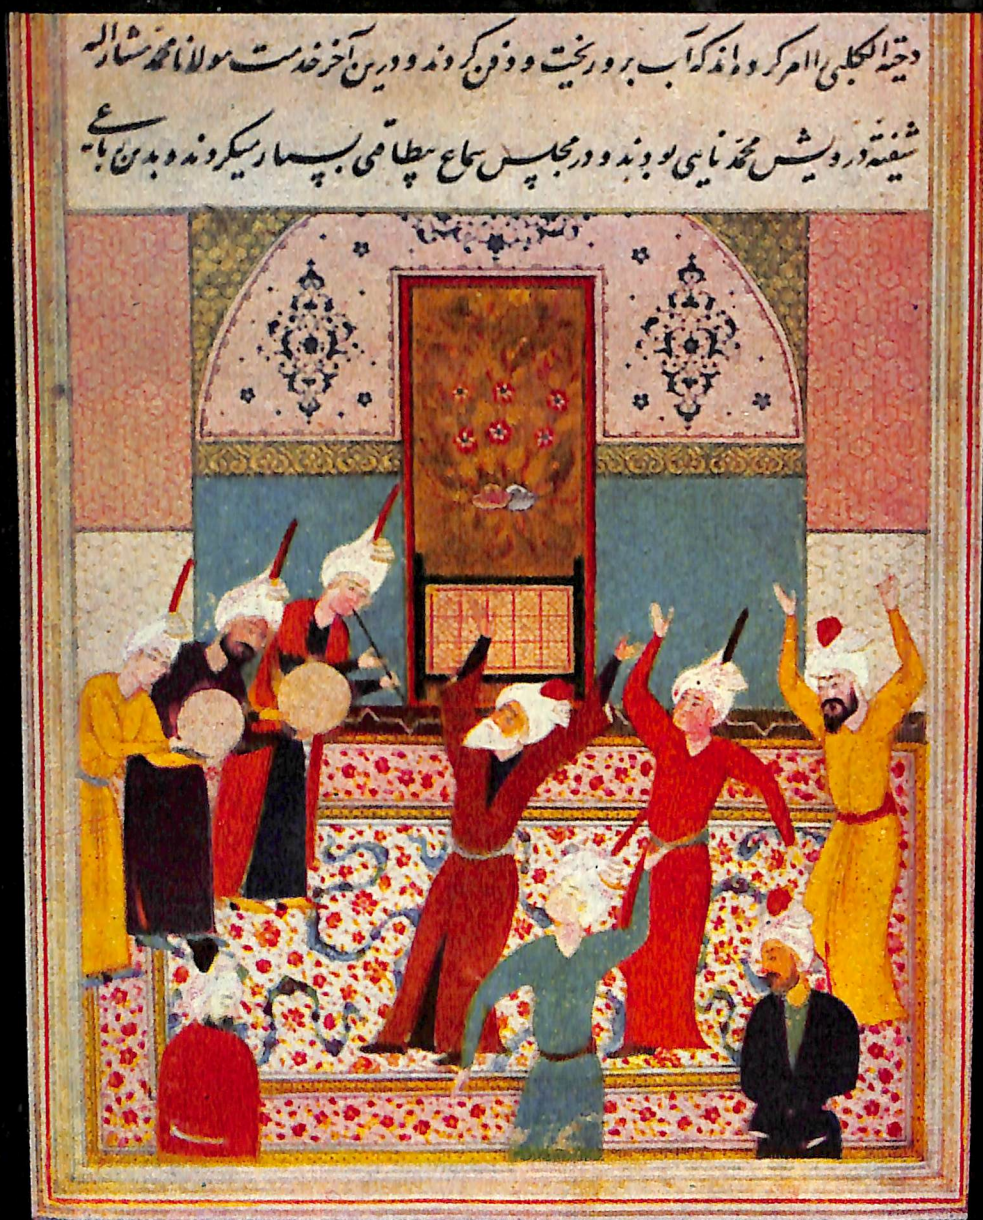 دقیقه الکجلی ‌اامر کرده‌اند که آب برو ریخت و دفن کردند و درین آخر خدمت مولانا محمد مشارالیه
شیفتهٔ درویش محمد نایی بودند و در مجلس سماع بیطاقتی بسیار میکردند و بدین رباعی